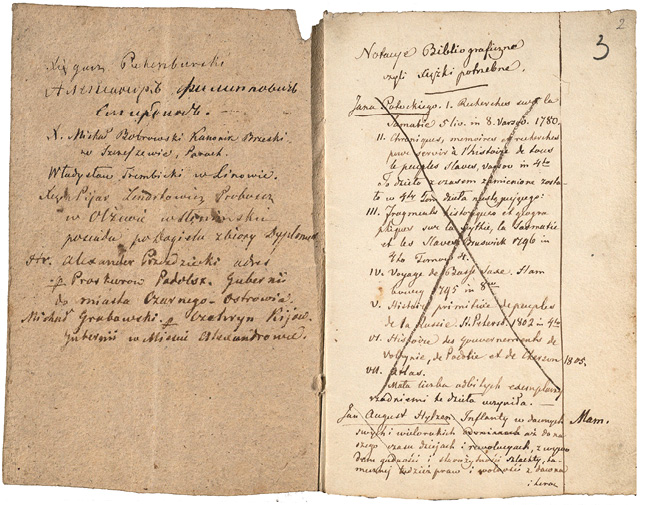 X. Michał Bobrowski Kanonik Brzeski
w Szereszewie, Paroch.
Władysław Trembicki w Linowie.
Xiędz Pijar Proboszcz
w
posiada po zbiory
Alexander Przezdziecki adres
p. Proskurow Padolsk. Gubernii
do miasta Czarnego-Ostrowia.
Michał Grabowski. p Czehryn Kijow.
Gubernii w Mieście Alexandrowce.
2
3
Notacye Bibliograficzne
czyli książki potrzebne.
Jana Potockiego. I. Recherches sur la
Sarmatie 5 liv. in 8. Varso. 1780.
II. Chroniques, memoires et recherches
pour servir à l'histoire de tous
le peuples Slaves, Varsov in 4to
To dzieło z czasem zamienione zosta-
ło w 4ty Tom dzieła następującego:
III. Fragments historiques et geogra
phiques sur la Scythie, la Sarmatie
et les Slaves Brunswick 1796 in
4to Tomow 4.
IV. Voyage de Basse Saxe. Ham
bourg 1795 in 8vo
V. Histoire primitive de peuples
de la Russie. St. Petersb. 1802 in 4to
VI. Histoire des Gouvernements de
Volhynie, de Podolie et de Cherson 1805.
VII. Atlas.
Mała liczba odbitych exemplarzy
rzadniemi te dzieła uczyniła.
Jan August Hylzen Inflanty w dawnych
swych i wielorakich odmianach aż do na
szego czasu dziejach i rewolucyach, z wywo
dem godności i starożytności szlachty, ta-
mecznej tudzież praw i wolności z dawna
i teraz
Mam.